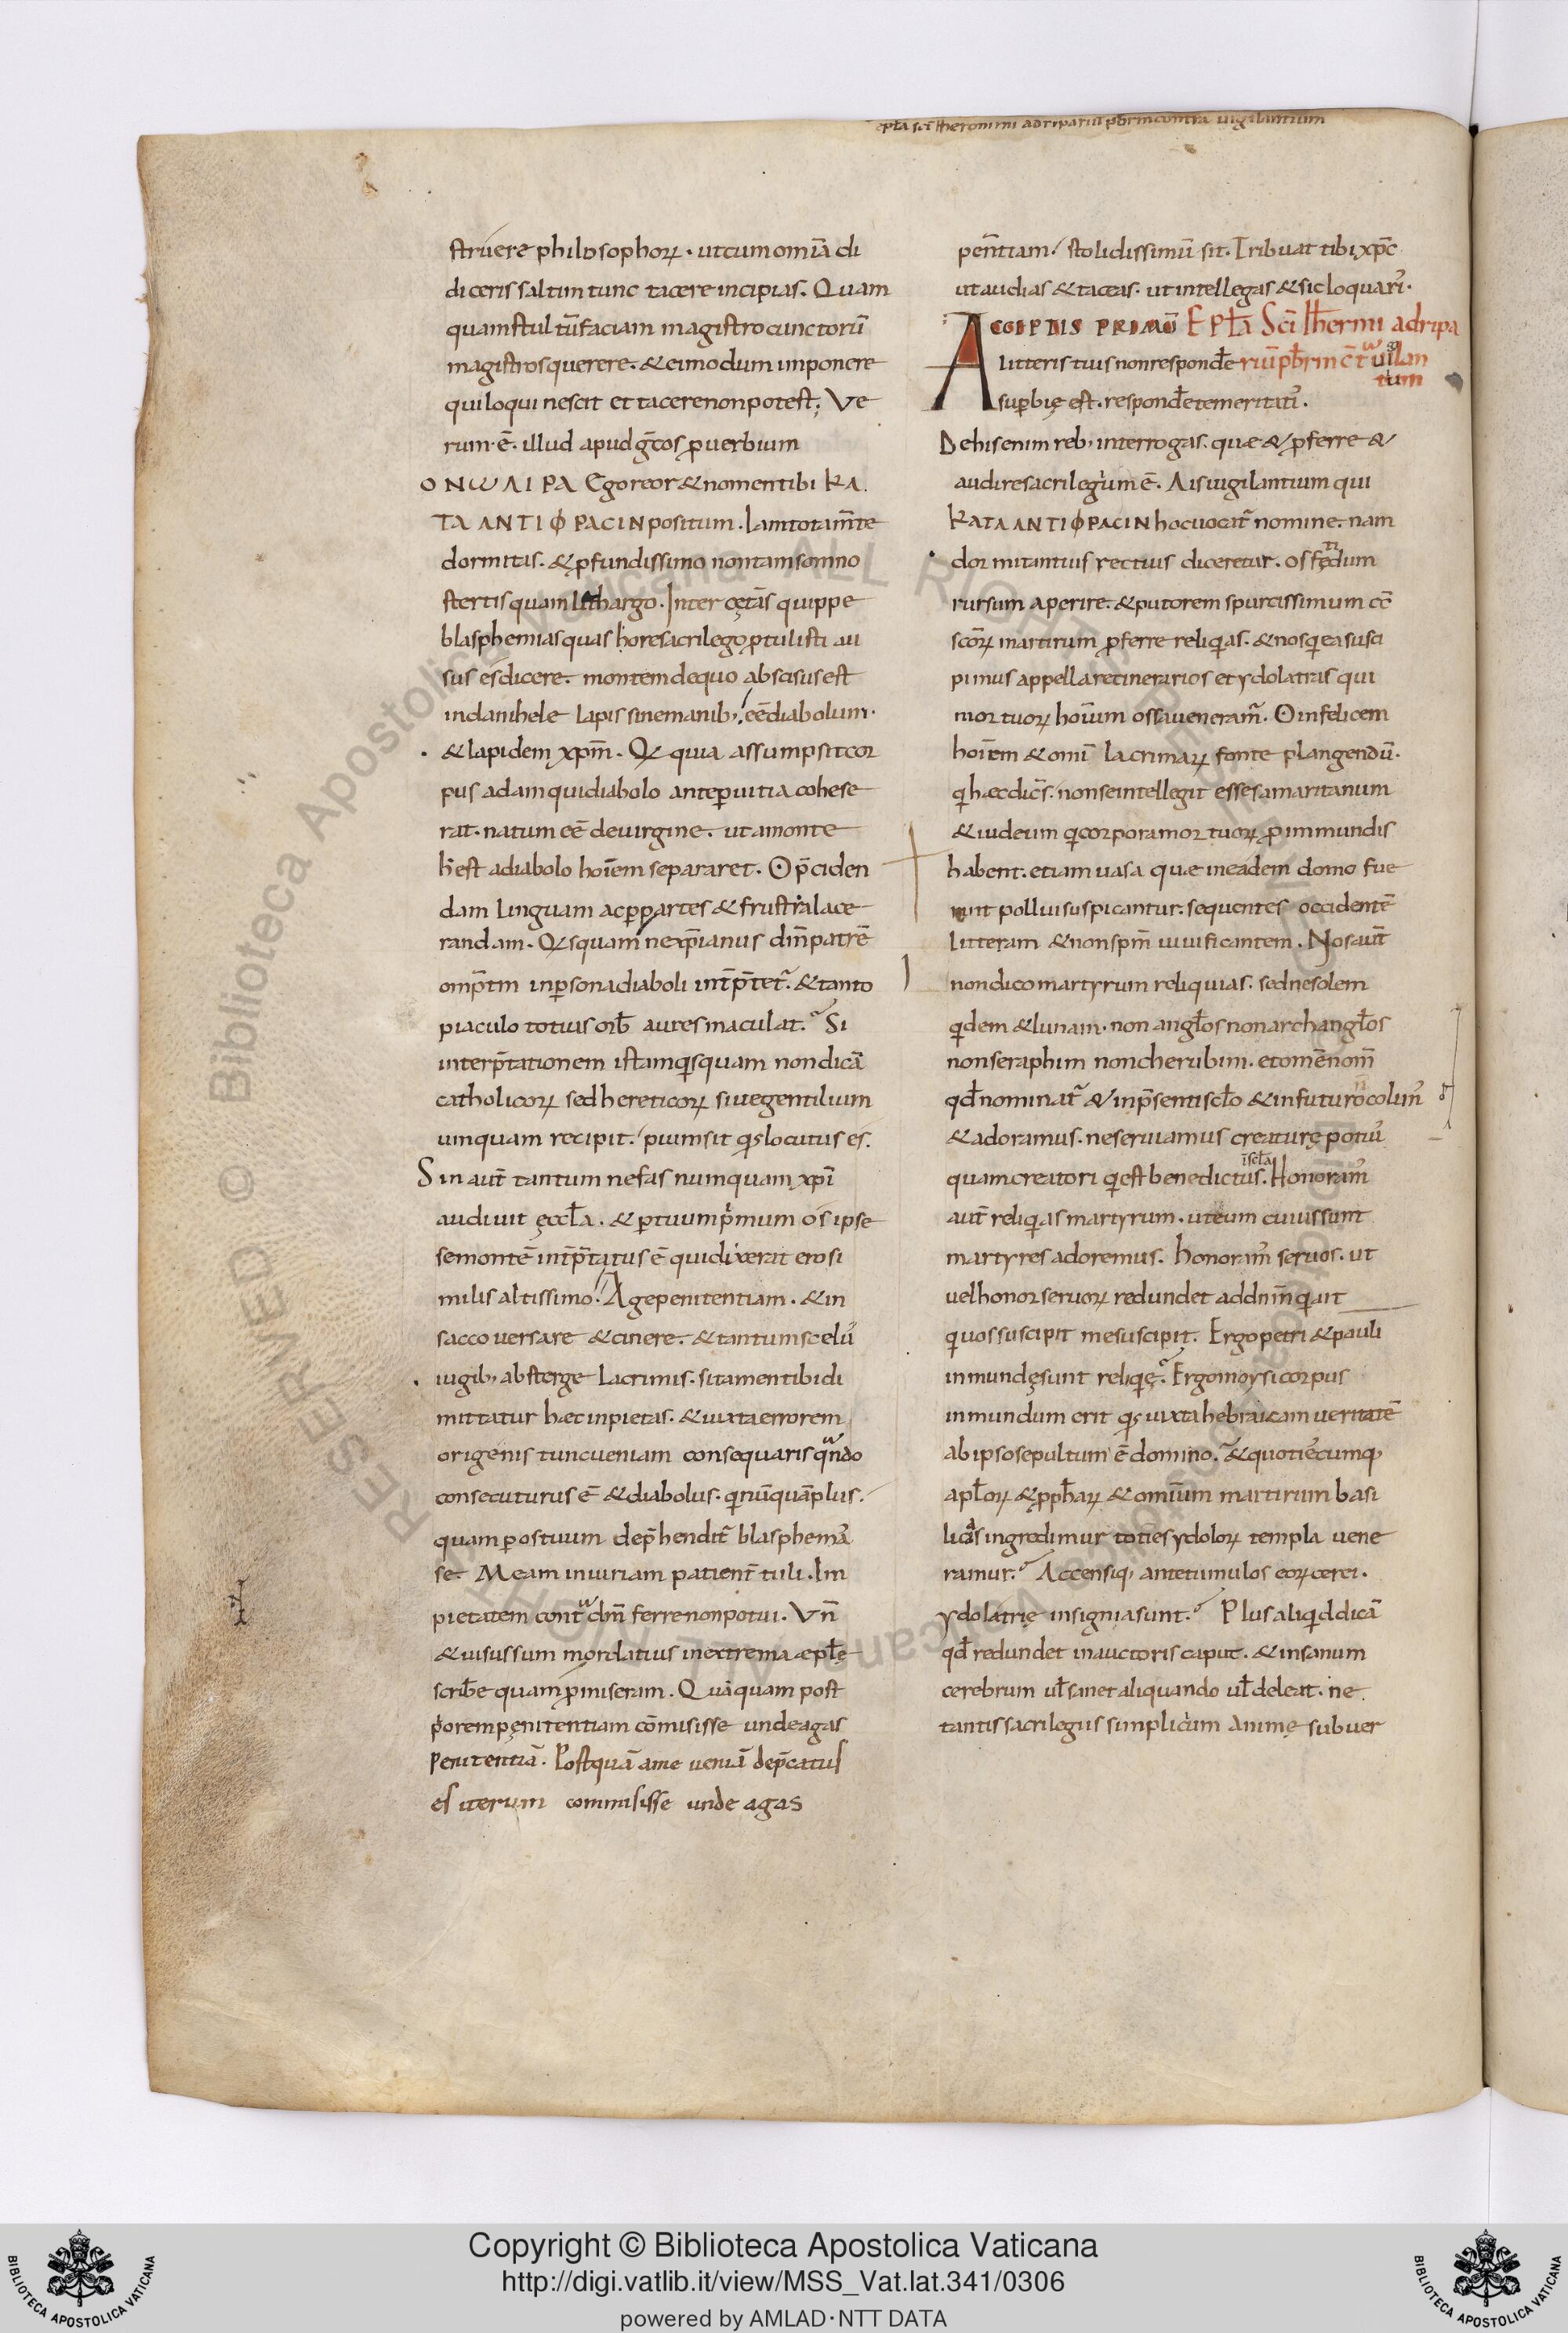 epła sci Hieronimi ad riparium pbrm contra uigilantium
struere philosophoꝝ. ut cum omĩa di
diceris saltim tunc tacere incipias. Quam
quam stultū faciam magistro cunctorū
magistros querere. & ei modum imponere
qui loqui nescit et tacere non potest. Ve
rum. ē. illud apud gc̄os ꝓuerbium
ONωΛIPΑ Ego reor & nomen tibi KΑ.
TΑ ANTIΦPACIN positum. Iam tota m̄te
dormitis. & ꝓfundissimo non tam somno
stertis quam lithargo. Inter cęt̄as quippe
blasphemias quas hore sacrilego ꝓtulisti au
sus es dicere. montem de quo abscisus est
in danihele lapis sine manib; eē diabolum.
& lapidem xp̄m. Qđ quia assumpsit cor
pus adam qui diabolo ante ꝑ uitia cohese
rat. natum eē de uirgine. ut a monte
h̄ est a diabolo hoīem separaret. O p̄ciden
dam linguam ac ꝑ partes & frustra lace
randam. Qisquam ne xp̄ianus dm̄ patrē
omp̄tm in ꝑsona diaboli int̄p̄tet̄. & tanto
piaculo totius orb̄ aures maculat. Si
interp̄tationem istam qisquam non dicā
catholicoꝝ sed hereticoꝝ siue gentilium
umquam recipit. pium sit qd locutus es.
Sin aut̄ tantum nefas numquam xp̄i
audiuit ęccła. & ꝑ tuum pimum os ipse
se montē int̄p̄tatus ē qui dixerat ero si
milis altissimo. Age penitentiam. & in
sacco uersare & cinere. & tantum scelus
iugib; absterge lacrimis. si tamen tibi di
mittatur hæc inpietas. & iuxta errorem
origenis tunc ueniam consequaris qn̄do
consecuturus ē & diabolus. qi nūquā plus.
quam ꝑ os tuum dep̄hendit̄ blasphemas
se. Meam iniuriam patient̄ tuli. Im
pietatem cont̄ dm̄ ferre non potui. Vn̄
& uisus sum mordatius in extrema æpłę
scribe quam ꝓmiseram. Quāquam post
piorem pęnitentiam cōmisisse unde agas
penitentiā. Postquā a me ueniā dep̄catus
es iterum commisisse unde agas
pen̄tiam. stolidissimū sit. Tribuat tibi xp̄c
ut audias & taceas. ut intellegas & sic loquaris.
ACCEPTIS PRIMŌ Epła Sci Hermi ad ripa
litteris tuis non respondere riū pbrm c̄t uigilan
tium
suꝑbię est. respondere temeritatis.
De his enim reb; interrogas. quæ & ꝓferre &
audire sacrilegium ē. Ais uigilantium qui
KATA ANTIΦPACIN hoc uocat̄ nomine. nam
dormitantius rectius diceretur. os fędum
rursum aperire. & putorem spurcissimum cc̄
sc̄oꝝ martirum ꝓferre reliqias. & nos qi ea susci
pimus appellare cinerarios et ydolatras qui
mortuoꝝ hoīum ossa ueneram̄. O infelicem
hoīem & omī lacrimaꝝ fonte plangendū.
qi hæc dic̄s. non se intellegit esse samaritanum
& iudeum qi corpora mortuoꝝ ꝓ immundis
habent. etiam uasa quæ in eadem domo fue
runt pollui suspicantur. sequentes occidentē
litteram & non spm̄ uiuificantem. Nos aut̄
non dico martyrum reliquias. sed ne solem
qidem & lunam. non angłos non archangłos
non seraphim non cherubim. et omē nom̄
qđ nominat̄ & in p̄senti scło & in futuro colim̄
& adoramus. ne seruamus creaturę potius
quam creatori qi est benedictus. ī scła Honoram̄
aut̄ reliqias martyrum. ut eum cuius sunt
martyres adoremus. honoram̄ seruos. ut
uel honor seruoꝝ redundet ad dnm̄ qi ait
qi uos suscipit me suscipit. Ergo petri & pauli
inmundę sunt reliqię. Ergo moysi corpus
inmundum erit qđ iuxta hebraicam ueritatē
ab ipso sepultum ē domino. & quotiēcumq;
apłoꝝ & ꝓph̄aꝝ & omīum martirum basi
licas ingredimur toties ydoloꝝ templa uene
ramur. Accensiq; ante tumulos eoꝝ cerei.
ydolatrię insignia sunt. Plus aliqid dicā
qđ redundet in auctoris caput. & insanum
cerebrum uł sanet aliquando uł deleat. ne
tantis sacrilegiis simplicium animę subuer
RESERVED © Biblioteca Apostolica Vaticana ALL RIGHTS RESERVED
Copyright © Biblioteca Apostolica Vaticana
http://digi.vatlib.it/view/MSS_Vat.lat.341/0306
powered by AMLAD·NTT DATA
BIBLIOTECA APOSTOLICA VATICANA
BIBLIOTECA APOSTOLICA VATICANA